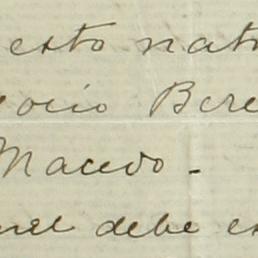 esto nat
ocio Bere
Macedo.-
nel debe es